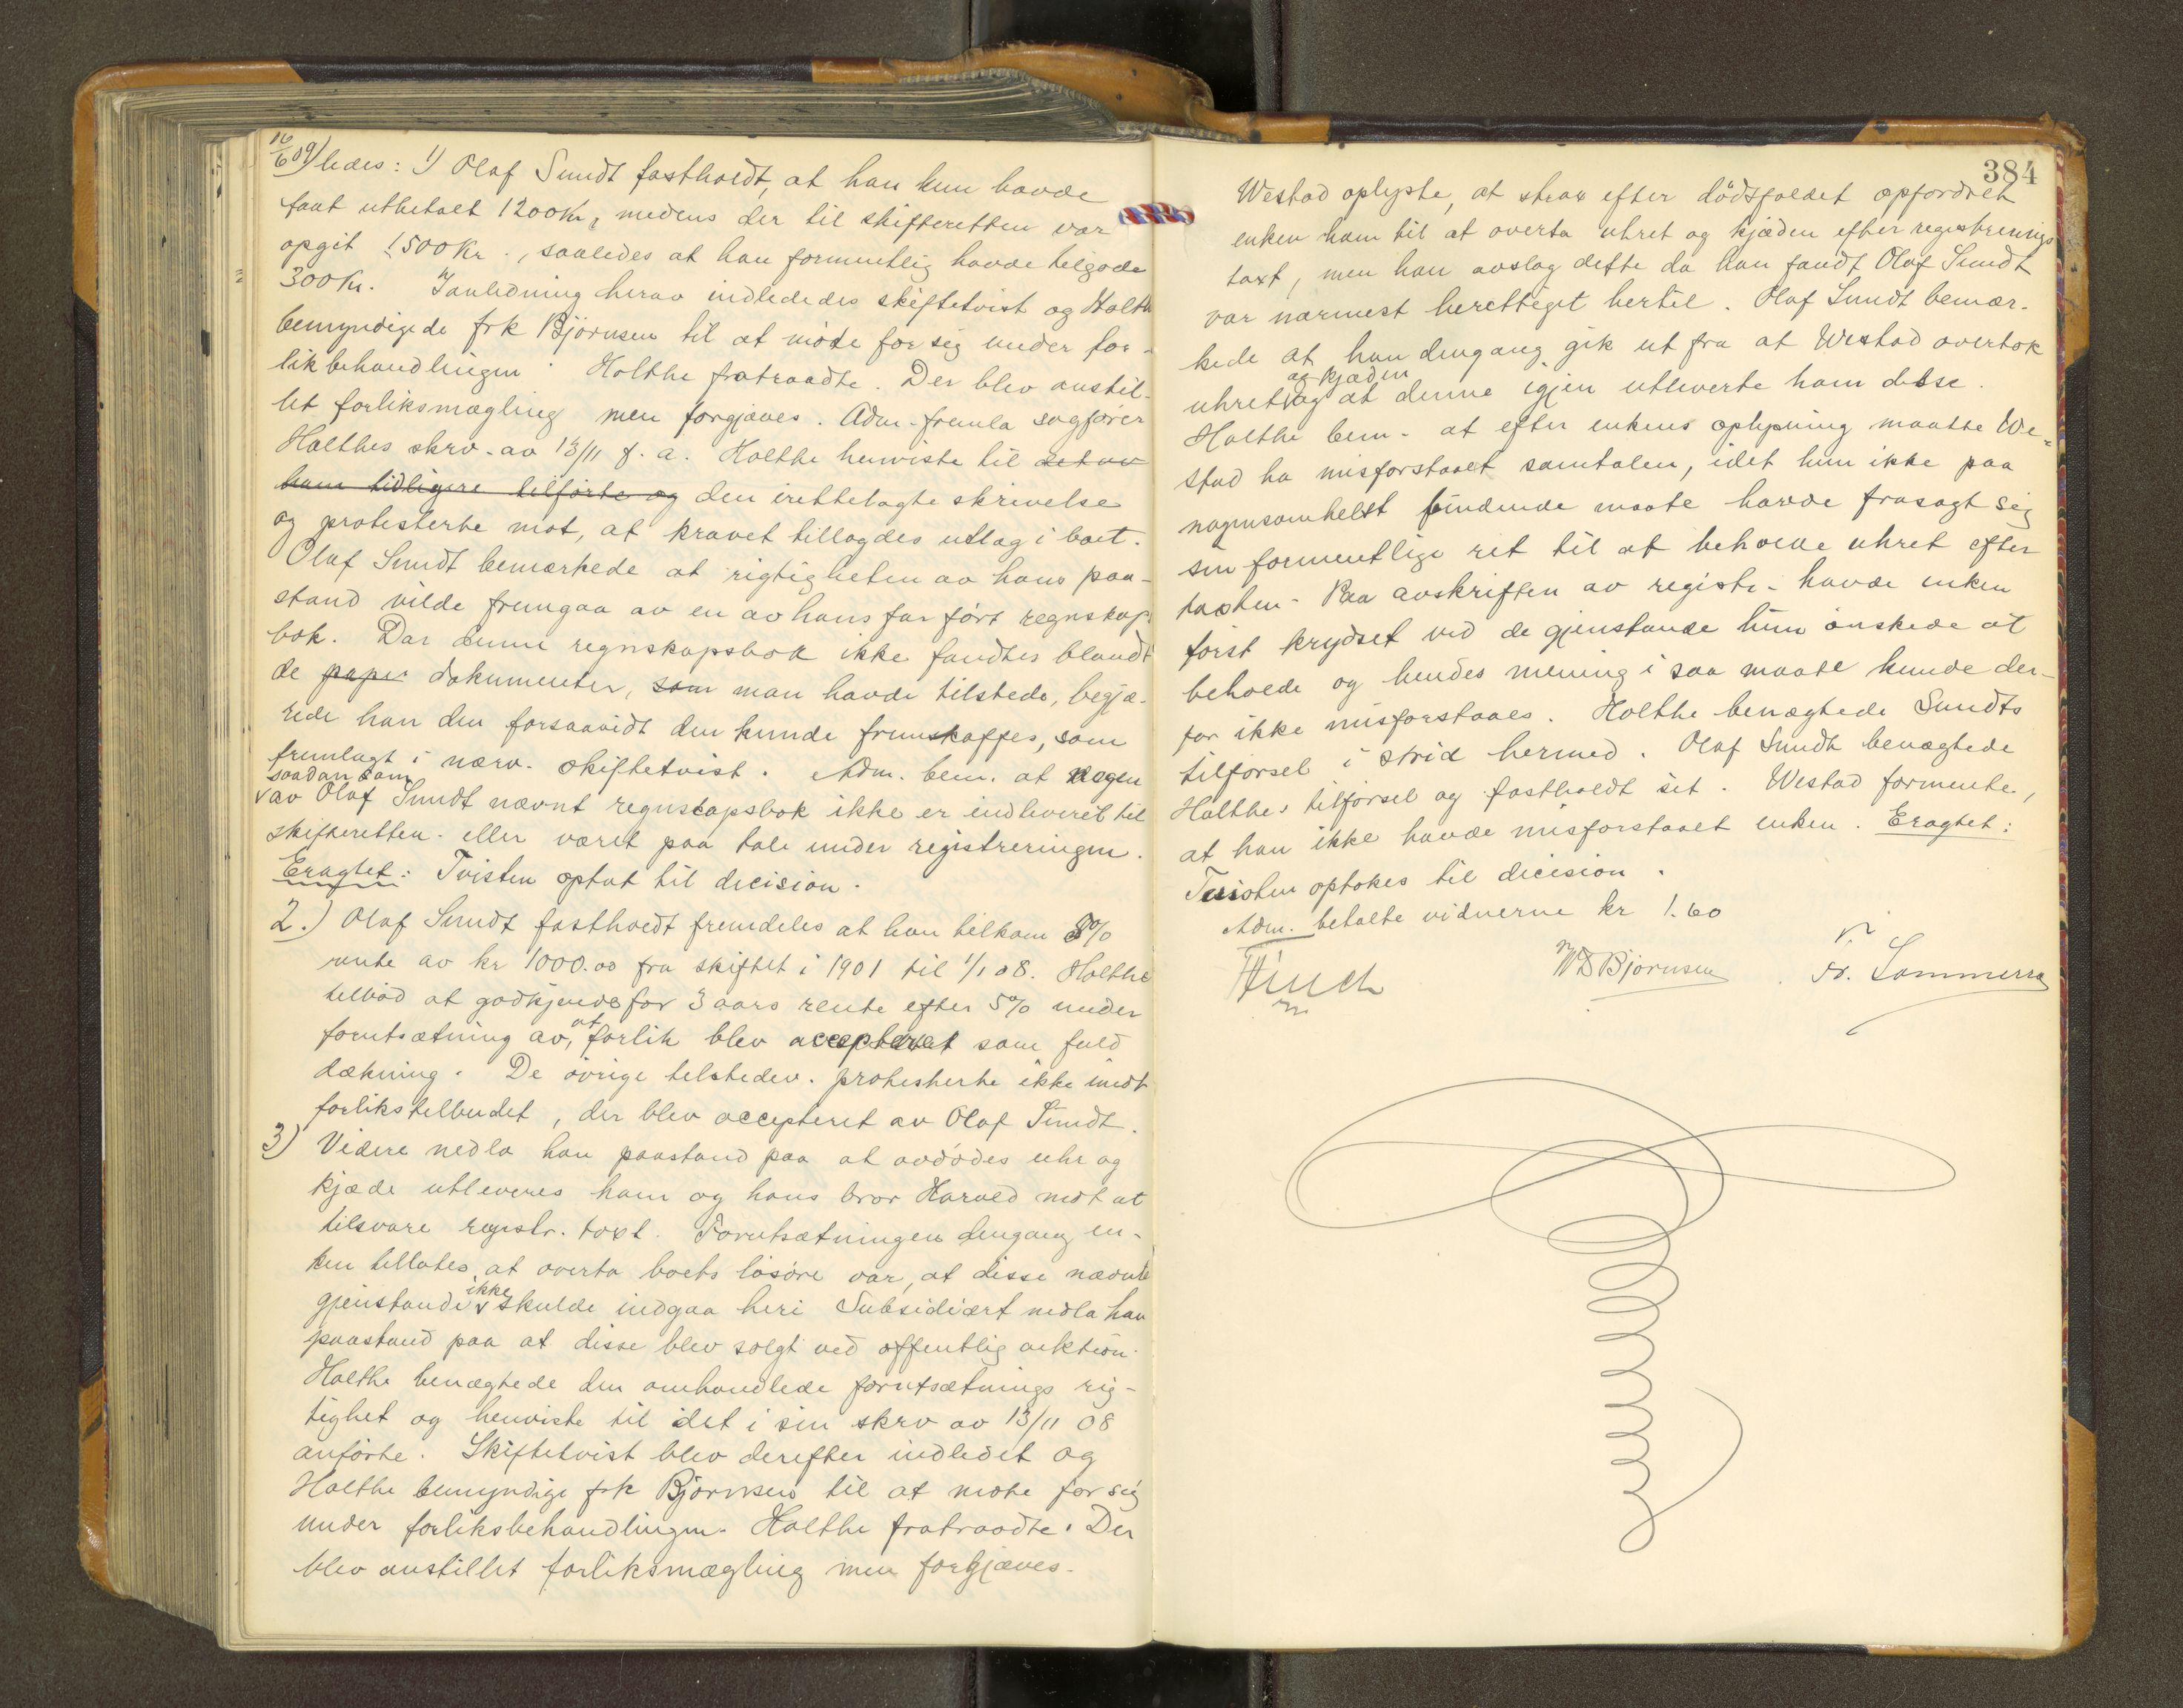 16/6 09) ledes: 1) Olaf Sundt fastholdt, at han kun havde
faat utbetalt 1200 Kr, medens der til skifteretten var
opgit 1500 Kr., saaledes at han formentlig havde tilgode
300 Kr. I anledning herav indlededes skiftetvist og Holthe
bemyndigede frk Björnsen til at möte for sig under for-
likbehandlingen. Holthe fratraadte. Der blev anstil-
let forliksmægling men forgjæves. Adm. fremla sagförer
Holthes skrv. av 13/11 f. a. Holthe henviste til det av
ham tidligere tilförte og den irettelagte skrivelse
og protesterte mot, at kravet tillagdes utlæg i boet.
Olaf Sundt bemærkede at rigtigheten av hans paa-
stand vilde fremgaa av en av hans far fört regnskaps
bok. Dar denne regnskapsbok ikke fandtes blandt
de papir dokumenter, som man havde tilstede, begjæ-
rede han den forsaavidt den kunde fremskaffes, som
fremlagt i nærv. skiftetvist. Adm. bem. at nogen
saadan som
av Olaf Sundt nævnt regnscapsbok ikke er indleveret til
skifteretten eller været paa tale under registreringen.
Eragtet: Tvisten optat til decision.
2.) Olaf Sundt fastholdt fremdeles at han tilkom 5%
rente av kr 1000.00 fra skiftet i 1901 til 1/1 08. Holthe
tilböd at godkjendes for 3 aars rente efter 5% under
forutsætning av, at forlik blev accepteret som fuld
dækning. De övrige tilstedev. protesterte ikke imot
forlikstilbudet, der blev accepteret av Olaf Sundt.
3) Videre nedla han paastand paa at avdödes uhr og
kjæde utleveres ham og hans bror Harald mot at
tilsvare registr. taxt. Forutsætningen dengang en-
ken tillates at overta boets lösöre var, at disse nævnte
gjenstande ikke skulde indgaa heri Subsidiært nedla han
paastand paa at disse blev solgt ved offentlig auktion.
Holthe benægtede den omhandlede forutsætnings rig-
tighet og henviste til det i sin skrv av 13/11 08
anförte. Skiftetvist blev derefter indledet og
Holthe bemyndige frk Björnsen til at möte for sig
under forliksbehandlingen. Holthe fratraadte. Der
blev anstillet forliksmægling men forgjæves.
384
Westad oplyste, at strax efter dödsfaldet opfordret
enken ham til at overta uhret og kjæden efter registrerings
taxt, men han avslog dette da han fandt Olaf Sundt
var nærmest berettiget hertil. Olaf Sundt bemær-
kede at han dengang gik ut fra at Westad overtok
og kjæden
uhret og at denne igjen utleverte ham disse.
Holthe bem. at efter enkens oplysning maatte We-
stad ha misforstaaet samtalen, idet hun ikke paa
nogensomhelst bindende maate havde frasagt sig
sin formentlige ret til at beholde uhret efter
taxten. Paa avskriften av registr. havde enken
först krydset ved de gjenstande hun önskede at
beholde og hendes mening i saa maate kunde der-
for ikke misforstaaes. Holthe benægtede Sundts
tilförsel i strid hermed. Olaf Sundt benægtede
Holthes tilförsel og fastholdt sit. Westad formente,
at han ikke havde misforstaaet enken. Eragtet:
Tvisten optokes til decision.
Adm. betalte vidnerne kr 1.60
Finch
Björnsen
Fr. Sommerra